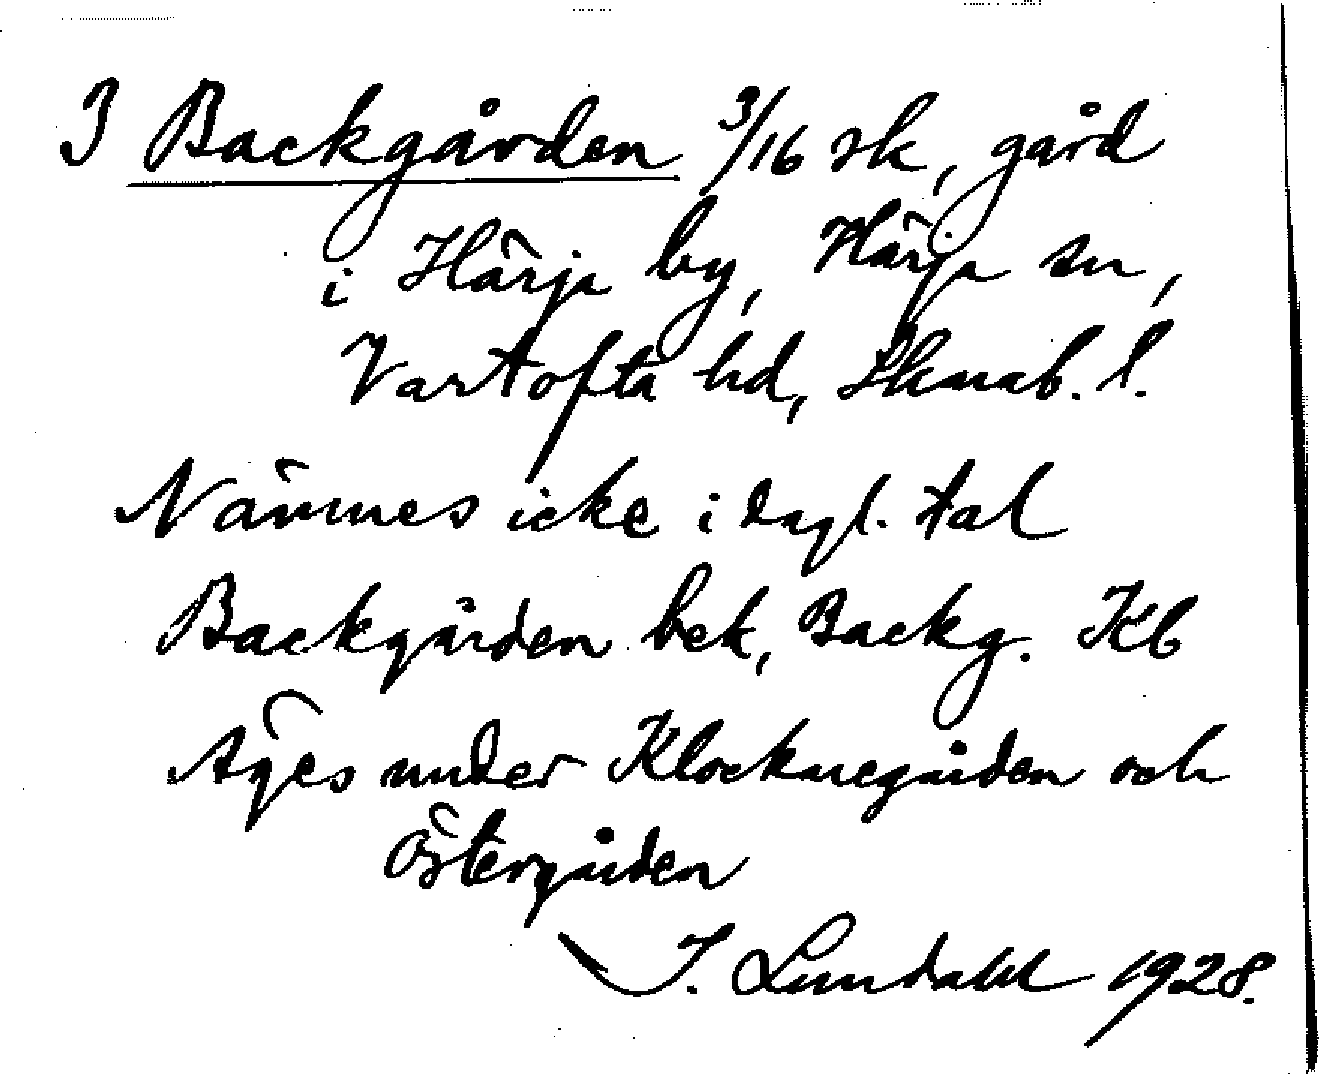 I Backgården 3/16 sk, gård
i Härja by, Härja sn,
Vartofta hd, Skarab. l.
Nämnes icke i dagl. tal
Backgården bek, Backg. Kb
Äges under Klockaregården och
Östergården
I. Lundahl 1928.